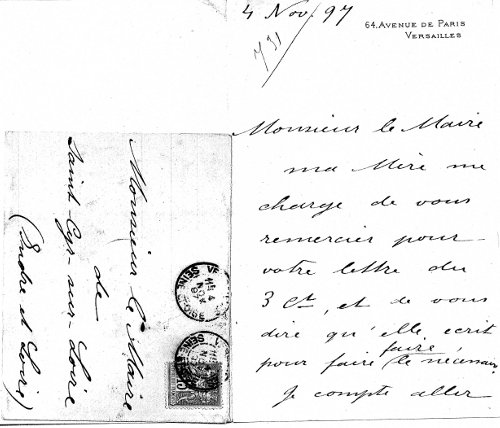 4 Nov. 97
64, AVENUE DE PARIS
VERSAILLES
Monsieur le Maire
ma Mère me
charge de vous
remercier pour
votre lettre du
3 Ct, et de vous
dire qu'elle ecrit
faire
pour faire le nécessaire
Je compte aller
Monsieur le Maire
de
Saint Cyr-sur-Loire
(Indre et Loire)